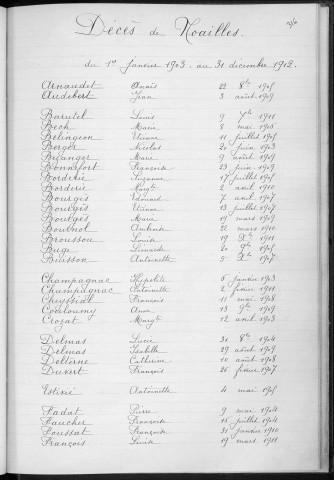 Décès de Noailles.
du 1er Janvier 1903 au 31 décembre 1912.
Arnaudet Anaïs 22 8bre 1905
Audebert Jean 3 août 1909
Barutel Louis 9 7bre 1911
Bech Marie 8 mai 1905
Belingeon Etienne 11 juillet 1905
Berger Nicolas 20 juin 1903
Besanger Marie 9 août 1909
Bonnefort Françoise 23 juin 1909
Borderie Suzanne 17 juillet 1905
Borderie Margte 2 août 1910
Bourgès Edouard 7 avril 1907
Bourgès Etienne 13 juillet 1907
Bourgès Maria 19 mars 1909
Boutnol 22 mars 1910
Broussou Louise 19 Xbre 1911
Buge Léonarde 20 9bre 1905
Buisson Antoinette 5 Xbre 1907
Champagnac Hippolyte 6 janvier 1903
Champagnac Antoinette 2 février 1911
Cheyssial François 11 mai 1908
Couloumy Anna 13 9bre 1909
Crozat Margte 12 avril 1903
Delmas Lucie 31 8bre 1904
Delmas Isabelle 29 août 1909
Deltorne Catherine 10 août 1908
Duvert François 26 février 1907
Estivié Antoinette 4 mai 1905
Fadat Pierre 9 mai 1904
Faucher Françoise 15 juillet 1904
Foussat Françoise 31 janvier 1910
François Louise 19 mars 1911